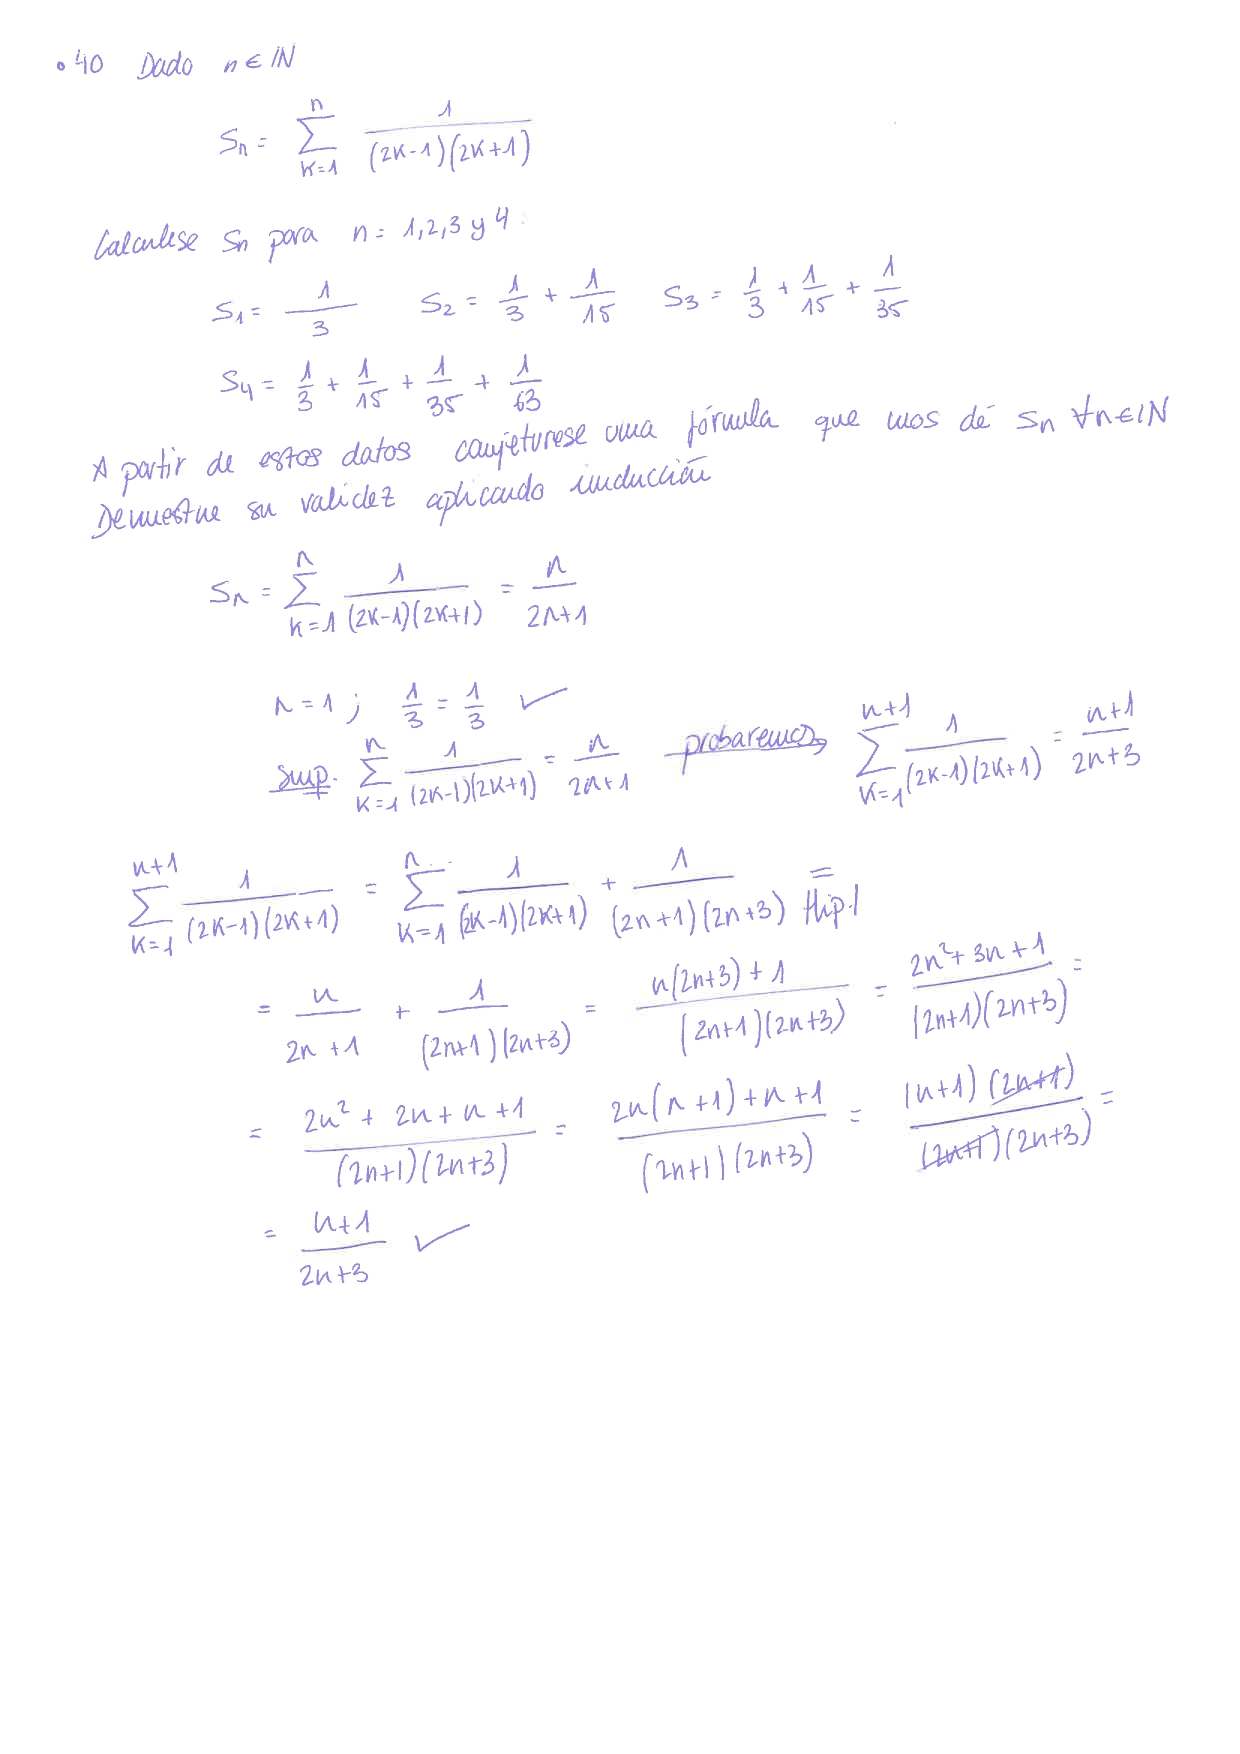 • 40 Dado n ∈ ℕ
Sn = ∑_{K=1}^{n} 1/((2K-1)(2K+1))
Calculese Sn para n = 1,2,3 y 4.
S1 = 1/3   S2 = 1/3 + 1/15   S3 = 1/3 + 1/15 + 1/35
S4 = 1/3 + 1/15 + 1/35 + 1/63
A partir de estos datos conjeturese una fórmula que nos dé Sn ∀n∈ℕ
Demuestre su validez aplicando inducción
Sn = ∑_{K=1}^{n} 1/((2K-1)(2K+1)) = n/(2n+1)
n = 1 ; 1/3 = 1/3 ✓
sup. ∑_{K=1}^{n} 1/((2K-1)(2K+1)) = n/(2n+1) probaremos ∑_{K=1}^{n+1} 1/((2K-1)(2K+1)) = (n+1)/(2n+3)
∑_{K=1}^{n+1} 1/((2K-1)(2K+1)) = ∑_{K=1}^{n} 1/((2K-1)(2K+1)) + 1/((2n+1)(2n+3)) = Hip.
= n/(2n+1) + 1/((2n+1)(2n+3)) = (n(2n+3)+1)/((2n+1)(2n+3)) = (2n²+3n+1)/((2n+1)(2n+3)) =
= (2n²+2n+n+1)/((2n+1)(2n+3)) = (2n(n+1)+n+1)/((2n+1)(2n+3)) = ((n+1)(2n+1))/((2n+1)(2n+3)) =
= (n+1)/(2n+3) ✓